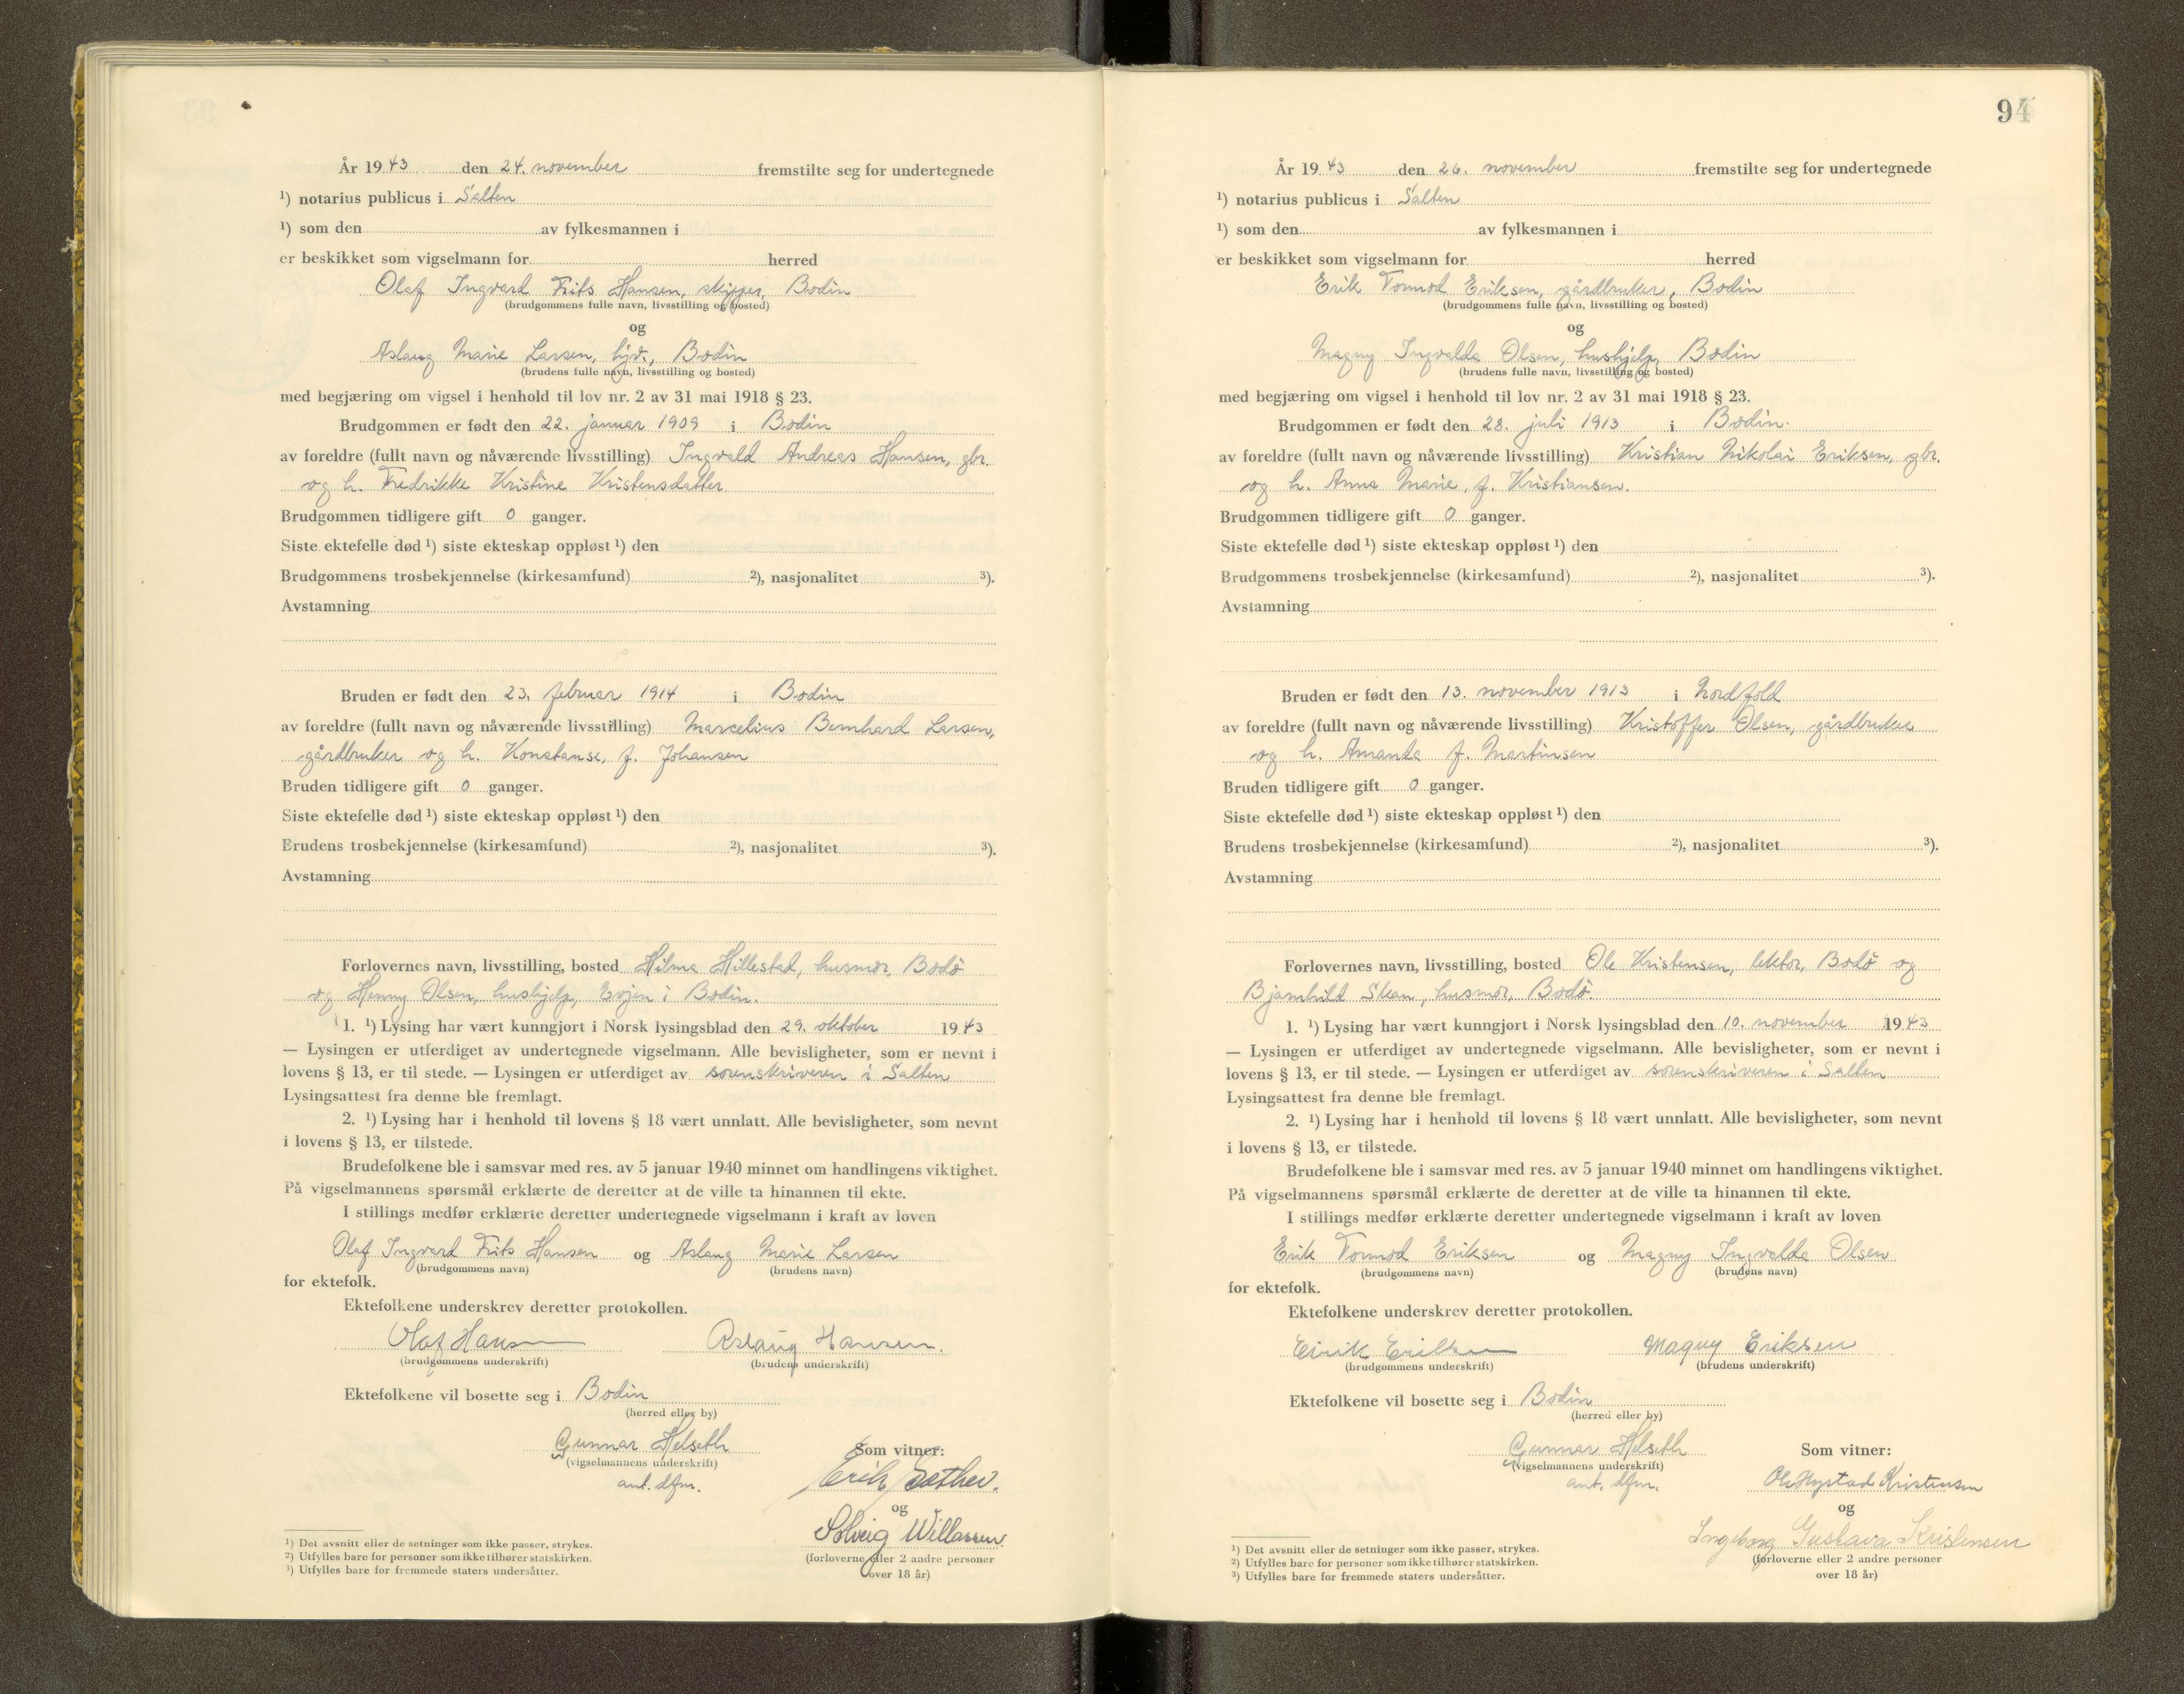 År 1943 den 24. november fremstilte seg for undertegnede
¹) notarius publicus i Salten
¹) som den av fylkesmannen i
er beskikket som vigselmann for herred
Olaf Ingvard Frits Hansen, skipper, Bodin
(brudgommens fulle navn, livsstilling og bosted)
og
Aslaug Marie Larsen, hjv., Bodin
(brudens fulle navn, livsstilling og bosted)
med begjæring om vigsel i henhold til lov nr. 2 av 31 mai 1918 § 23.
Brudgommen er født den 22. januar 1909 i Bodin
av foreldre (fullt navn og nåværende livsstilling) Ingvald Andreas Hansen, gbr.
og h. Fredrikke Kristine Kristensdatter
Brudgommen tidligere gift 0 ganger.
Siste ektefelle død ¹) siste ekteskap oppløst ¹) den
Brudgommens trosbekjennelse (kirkesamfund) ²), nasjonalitet ³).
Avstamning
Bruden er født den 23. februar 1914 i Bodin
av foreldre (fullt navn og nåværende livsstilling) Marcelius Bernhard Larsen,
gårdbruker og h. Konstanse, f. Johansen
Bruden tidligere gift 0 ganger.
Siste ektefelle død ¹) siste ekteskap oppløst ¹) den
Brudens trosbekjennelse (kirkesamfund) ²), nasjonalitet ³).
Avstamning
Forlovernes navn, livsstilling, bosted Hilma Hillestad, husmor, Bodø
og Henny Olsen, hushjelp, Evjen i Bodin.
1. ¹) Lysing har vært kunngjort i Norsk lysingsblad den 29. oktober 1943
— Lysingen er utferdiget av undertegnede vigselmann. Alle bevisligheter, som er nevnt i
lovens § 13, er til stede. — Lysingen er utferdiget av sorenskriveren i Salten
Lysingsattest fra denne ble fremlagt.
2. ¹) Lysing har i henhold til lovens § 18 vært unnlatt. Alle bevisligheter, som nevnt
i lovens § 13, er tilstede.
Brudefolkene ble i samsvar med res. av 5 januar 1940 minnet om handlingens viktighet.
På vigselmannens spørsmål erklærte de deretter at de ville ta hinannen til ekte.
I stillings medfør erklærte deretter undertegnede vigselmann i kraft av loven
Olaf Ingvard Frits Hansen og Aslaug Marie Larsen
(brudgommens navn) (brudens navn)
for ektefolk.
Ektefolkene underskrev deretter protokollen.
Olaf Hansen Aslaug Hansen.
(brudgommens underskrift) (brudens underskrift)
Ektefolkene vil bosette seg i Bodin
(herred eller by)
Gunnar Helseth Som vitner:
(vigselmannens underskrift)
ant. dfm. Erik
og
Solveig Willassen.
(forloverne eller 2 andre personer
over 18 år)
¹) Det avsnitt eller de setninger som ikke passer, strykes.
²) Utfylles bare for personer som ikke tilhører statskirken.
³) Utfylles bare for fremmede staters undersåtter.
94
År 1943 den 26. november fremstilte seg for undertegnede
¹) notarius publicus i Salten
¹) som den av fylkesmannen i
er beskikket som vigselmann for herred
Erik Tormod Eriksen, gårdbruker, Bodin
(brudgommens fulle navn, livsstilling og bosted)
og
Magny Ingvalda Olsen, hushjelp, Bodin
(brudens fulle navn, livsstilling og bosted)
med begjæring om vigsel i henhold til lov nr. 2 av 31 mai 1918 § 23.
Brudgommen er født den 28. juli 1913 i Bodin.
av foreldre (fullt navn og nåværende livsstilling) Kristian Nikolai Eriksen, gbr.
og h. Anna Marie, f. Kristiansen.
Brudgommen tidligere gift 0 ganger.
Siste ektefelle død ¹) siste ekteskap oppløst ¹) den
Brudgommens trosbekjennelse (kirkesamfund) ²), nasjonalitet ³).
Avstamning
Bruden er født den 13. november 1913 i Nordfold
av foreldre (fullt navn og nåværende livsstilling) Kristoffer Olsen, gårdbruker
og h. Amanda f. Martinsen
Bruden tidligere gift 0 ganger.
Siste ektefelle død ¹) siste ekteskap oppløst ¹) den
Brudens trosbekjennelse (kirkesamfund) ²), nasjonalitet ³).
Avstamning
Forlovernes navn, livsstilling, bosted Ole Kristensen, lektor, Bodø og
Bjarnhild Skan, husmor, Bodø.
1. ¹) Lysing har vært kunngjort i Norsk lysingsblad den 10. november 1943
— Lysingen er utferdiget av undertegnede vigselmann. Alle bevisligheter, som er nevnt i
lovens § 13, er til stede. — Lysingen er utferdiget av sorenskriveren i Salten
Lysingsattest fra denne ble fremlagt.
2. ¹) Lysing har i henhold til lovens § 18 vært unnlatt. Alle bevisligheter, som nevnt
i lovens § 13, er tilstede.
Brudefolkene ble i samsvar med res. av 5 januar 1940 minnet om handlingens viktighet.
På vigselmannens spørsmål erklærte de deretter at de ville ta hinannen til ekte.
I stillings medfør erklærte deretter undertegnede vigselmann i kraft av loven
Erik Tormod Eriksen og Magny Ingvalda Olsen
(brudgommens navn) (brudens navn)
for ektefolk.
Ektefolkene underskrev deretter protokollen.
Eirik Eriksen Magny Eriksen
(brudgommens underskrift) (brudens underskrift)
Ektefolkene vil bosette seg i Bodin
(herred eller by)
Gunnar Helseth Som vitner:
(vigselmannens underskrift)
ant. dfm. Ole Kristensen
og
Ingeborg Gustava Kristensen
(forloverne eller 2 andre personer
over 18 år)
¹) Det avsnitt eller de setninger som ikke passer, strykes.
²) Utfylles bare for personer som ikke tilhører statskirken.
³) Utfylles bare for fremmede staters undersåtter.